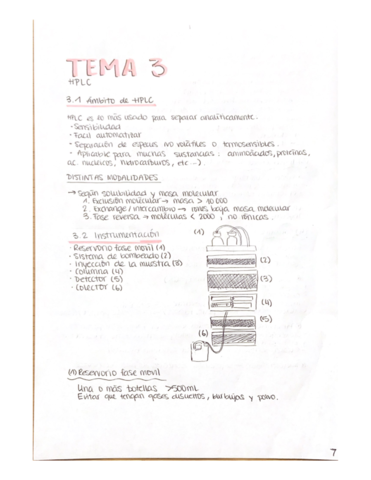 TEMA 3
HPLC
3.1 Ámbito de HPLC
HPLC es lo más usado para separar analíticamente.
· Sensibilidad
· Fácil automatizar
· Separación de especies no volátiles o termosensibles.
· Aplicable para muchas sustancias: aminoácidos, proteínas,
ac. nucleicos, hidrocarburos, etc...)
DISTINTAS MODALIDADES
→ Según solubilidad y masa molecular
1. Exclusión molecular → masa > 10000
2. Exchange / intercambio → iones baja masa molecular
3. Fase reversa → moléculas < 2000, no iónicas.
3.2 Instrumentación
· Reservorio fase móvil (1)
· Sistema de bombeado (2)
· Inyección de la muestra (3)
· Columna (4)
· Detector (5)
· Colector (6)
(1)
(2)
(3)
(4)
(5)
(6)
(1) Reservorio fase móvil
Una o más botellas >500mL
Evitar que tengan gases disueltos, burbujas y polvo.
7